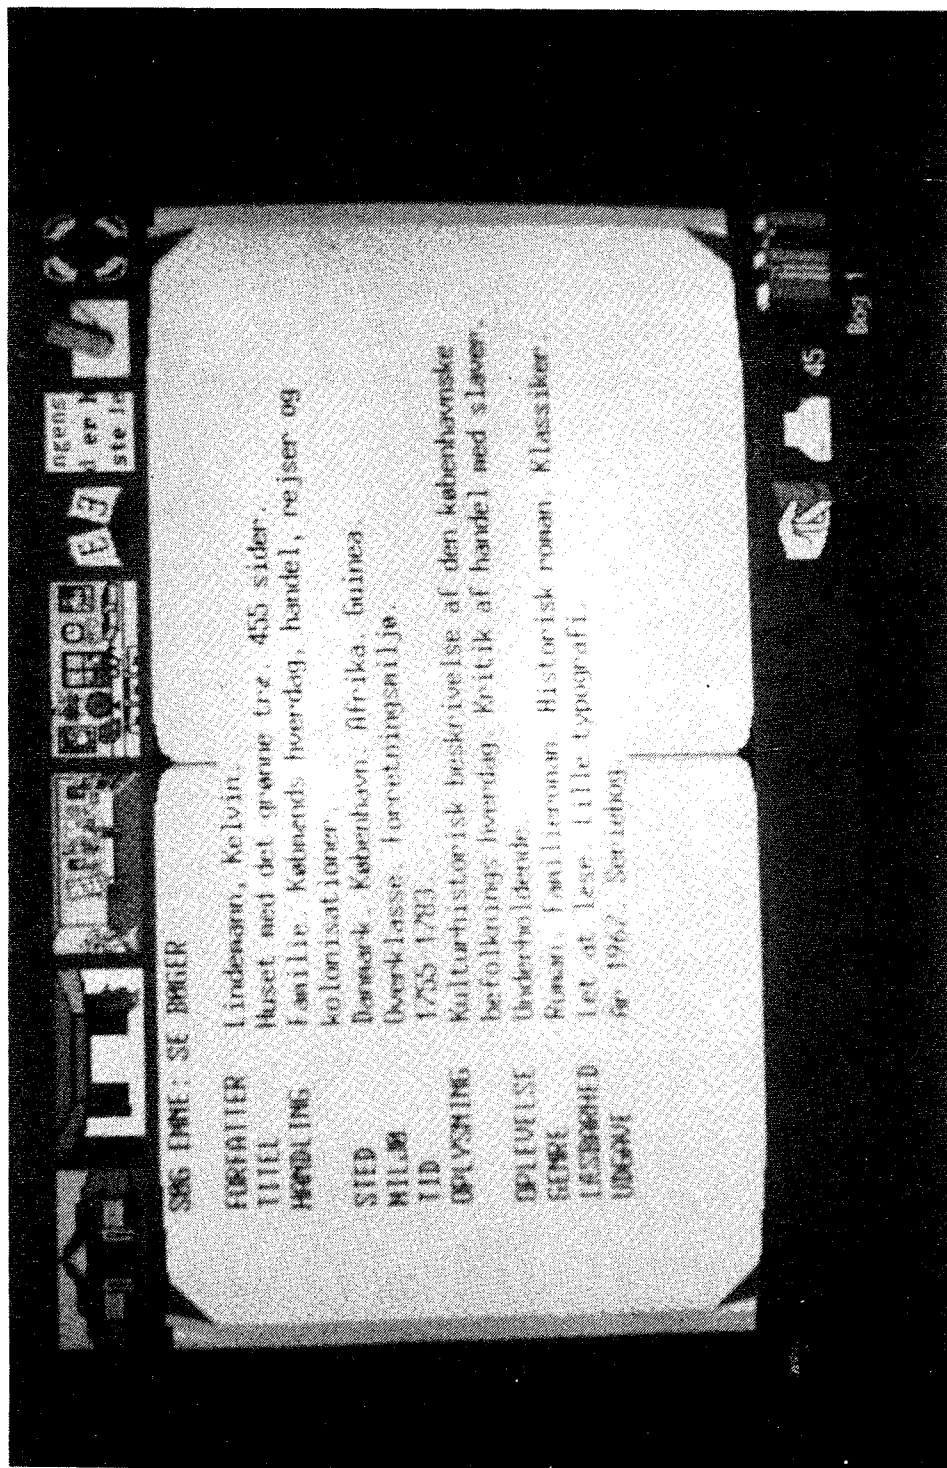 ngens
d er h
ste le
SØG EMNE: SE BØGER
FORFATTER Lindemann, Kelvin.
TITEL Huset med det grønne træ. 455 sider.
HANDLING Familie. Købmænds hverdag, handel, rejser og
kolonisationer.
STED Danmark. København. Afrika. Guinea
MILJØ Overklasse. Forretningsmiljø.
TID 1755-1783
OPLYSNING Kulturhistorisk beskrivelse af den københavnske
befolknings hverdag. Kritik af handel med slaver.
OPLEVELSE Underholdende
GENRE Roman. Familieroman Historisk roman. Klassiker.
LÆSBARHED Let at læse. Lille typografi.
UDGAVE År 1962. Seriebog.
45
Bog 1